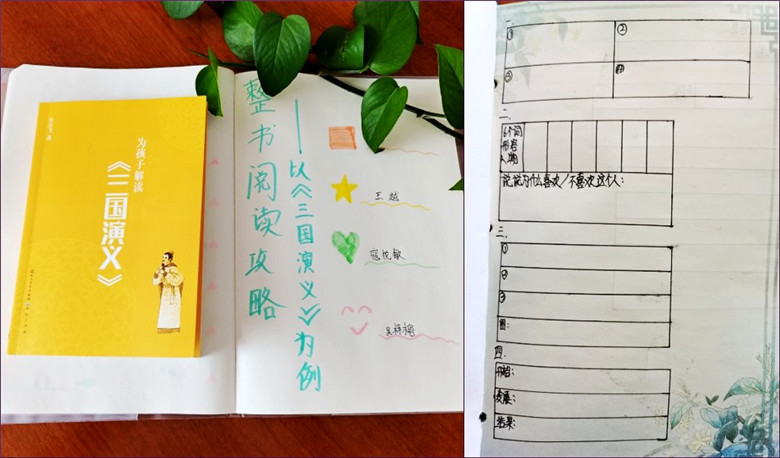 为孩子解读
《三国演义》
整书阅读攻略
——以《三国演义》为例
王越
一、
①
②
③
四
二、
6个词
形容
人物
说说为什么喜欢/不喜欢这个人:
三、
①
②
③
图:
四、
开始:
发展:
结果: